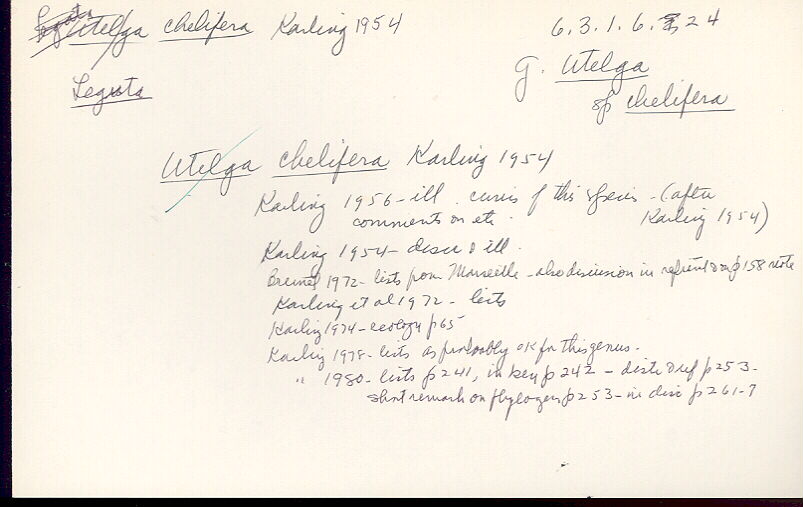 Utelga chelifera Karling 1954
6.3.1.6. 24
Leguta
G. Utelga
sp chelifera
Utelga chelifera Karling 1954
Karling 1956 - ill. cirrus of this species - (after
comments on etc. Karling 1954)
Karling 1954 - discr & ill.
Brunet 1972 - lists from Marseille - also discussion in p158 note
Karling et al 1972 - lists
Karling 1974 - ecology p65
Karling 1978 - lists as probably OK for this genus.
" 1980 - lists p241, in key p242 - distr & ref p253 -
short remark on phylogeny p253 - in disc p261-7